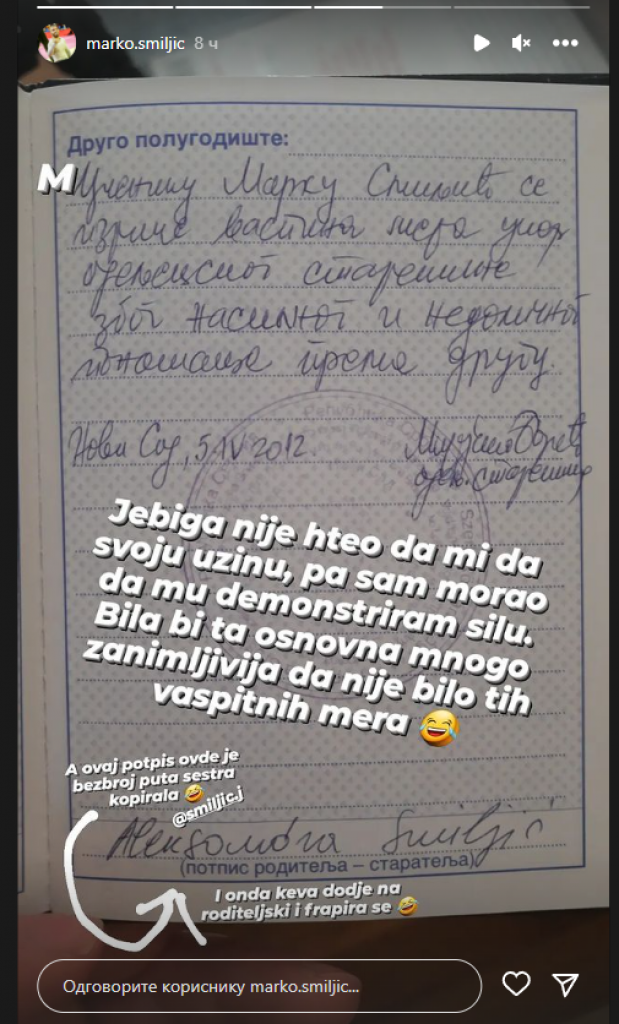 marko.smiljic 8 ч
Друго полугодиште:
M
Ученику Марку Смиљићу се
изриче васпитна мера укор
одељенског старешине
због насилног и недоличног
понашања према другу.
Нови Сад, 5.IV 2012.
одељ. старешина
Jebiga nije hteo da mi da
svoju uzinu, pa sam morao
da mu demonstriram silu.
Bila bi ta osnovna mnogo
zanimljivija da nije bilo tih
vaspitnih mera 😂
A ovaj potpis ovde je
bezbroj puta sestra
kopirala 🤣
@smiljic.j
Александра Smiljić
(потпис родитеља – старатеља)
I onda keva dodje na
roditeljski i frapira se 🤣
Одговорите кориснику marko.smiljic...